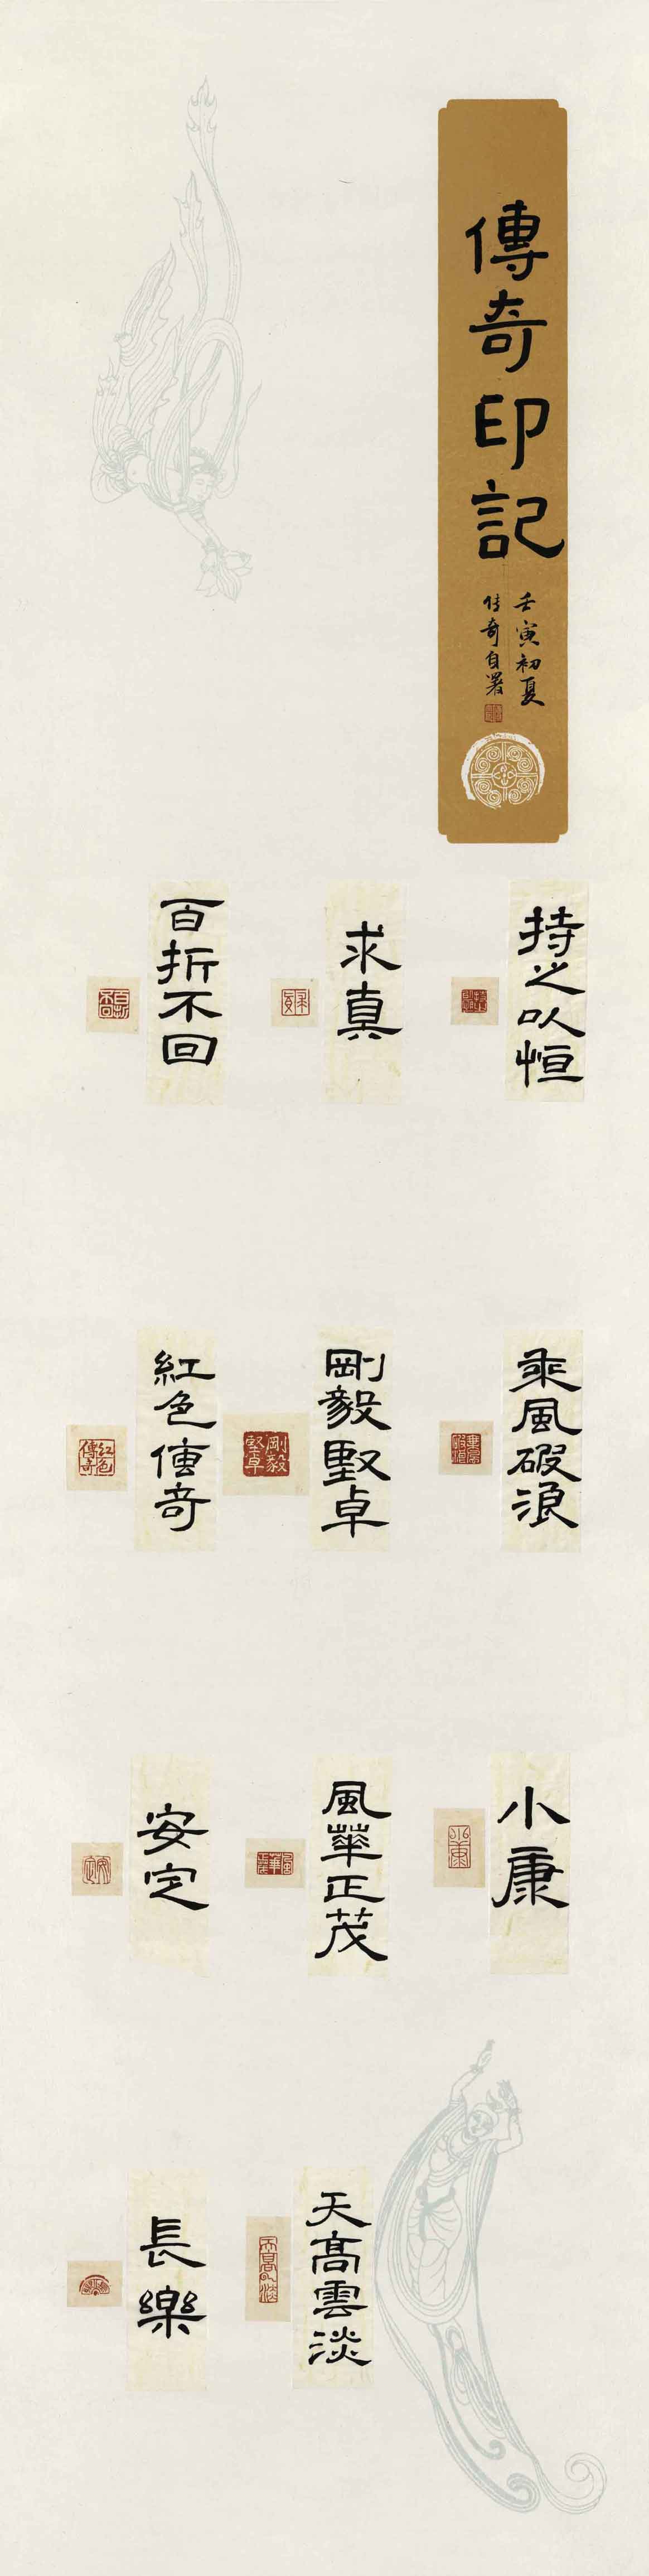 傳奇印記
壬寅初夏
传奇自署
持之以恒
求真
百折不回
乘風破浪
剛毅堅卓
紅色傳奇
小康
風華正茂
安定
天高雲淡
長樂